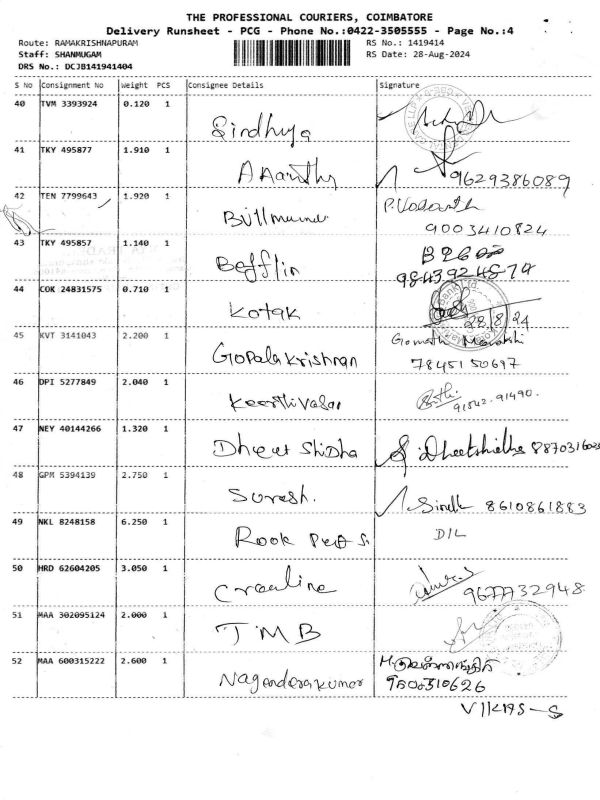 THE PROFESSIONAL COURIERS, COIMBATORE
Delivery Runsheet - PCG - Phone No.:0422-3505555 - Page No.:4
Route: RAMAKRISHNAPURAM
RS No.: 1419414
Staff: SHANMUGAM
RS Date: 28-Aug-2024
DRS No.: DCJB141941404
S No Consignment No Weight PCS Consignee Details Signature
40 TVM 3393924 0.120 1
Sindhuja
41 TKY 495877 1.910 1
Ananthy
9629386089
42 TEN 7799643 1.920 1
P.Vadanth
9003410824
43 TKY 495857 1.140 1
Befflin
44 COK 24831575 0.710 1
Kotak
28/8/24
45 KVT 3141043 2.200 1
Gopalakrishnan
Gomathi Meenakshi
7845150697
46 DPI 5277849 2.040 1
Keerthivasan
91542.91490.
47 NEY 40144266 1.320 1
Dheet Shidha
48 GPM 5394139 2.750 1
Suresh.
8610861883
49 NKL 8248158 6.250 1
Rook
D/L
50 HRD 62604205 3.050 1
Craaline
9677732948
51 MAA 302095124 2.000 1
TMB
52 MAA 600315222 2.600 1
Nagenderakumar
VIKAS-S